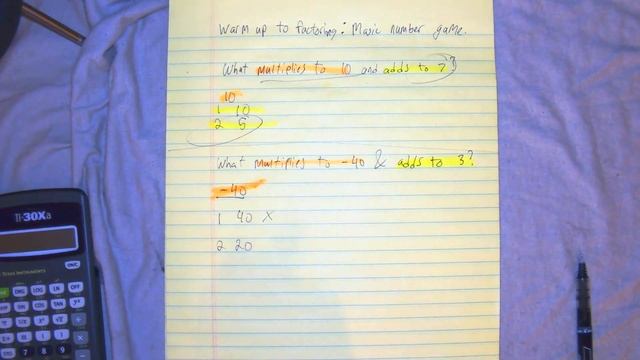 Warm up to factoring: Magic number game.
What multiplies to 10 and adds to 7?
10
1 10
2 5
What multiplies to -40 & adds to 3?
-40
1 40 x
2 20
TI-30Xa
Texas Instruments
ON/C
DRG LOG LN OFF
SIN COS TAN
7 8 9